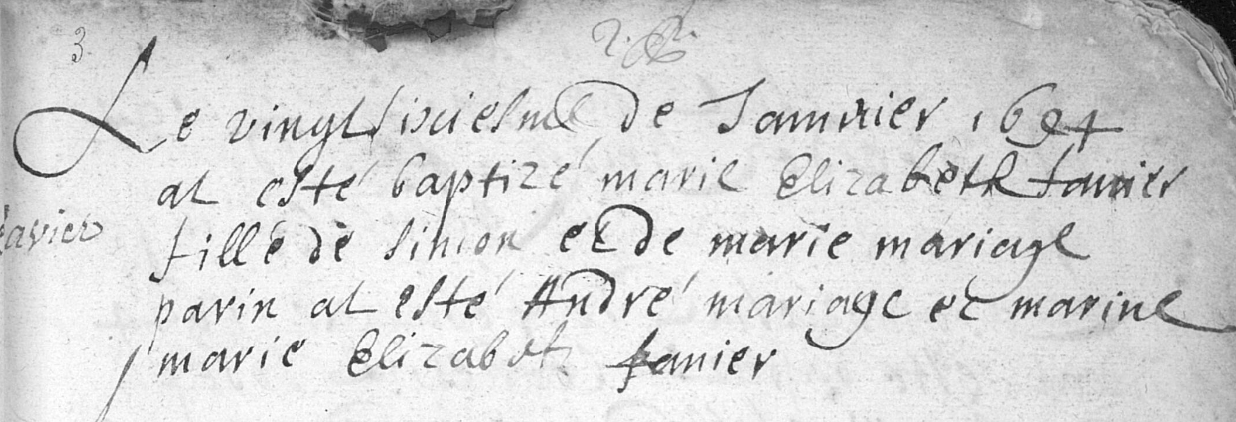 3
Le vingt sixiesme de Januier 1694
at esté baptizé marie Elizabeth fauier
fille de simon et de marie mariage
parin at esté André mariage et marine
marie Elizabet fauier